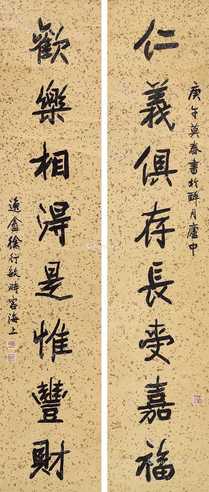 仁義俱存長受嘉福
庚午莫春書於醉月廬中
歡樂相得是惟豐財
徐行敏時客海上